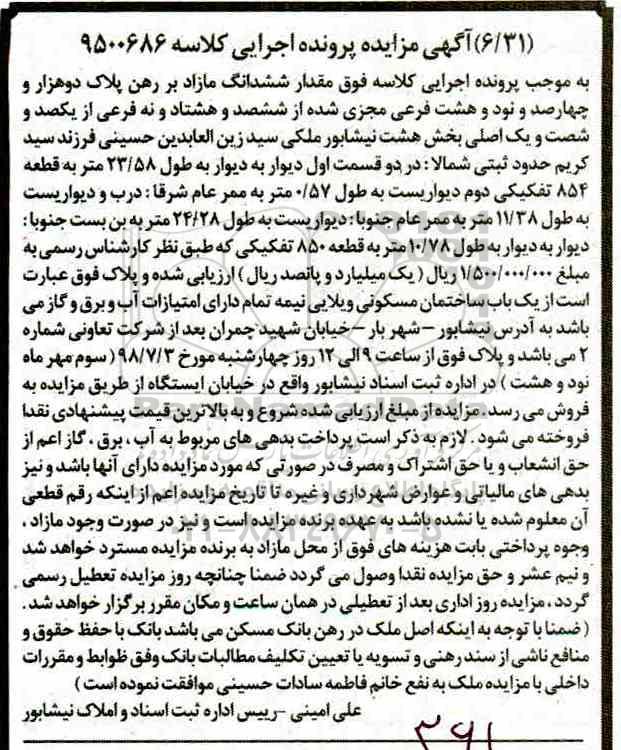 (۶/۳۱) آگهی مزایده پرونده اجرایی کلاسه ۹۵۰۰۶۸۶
به موجب پرونده اجرایی کلاسه فوق مقدار ششدانگ مازاد بر رهن پلاک دوهزار و
چهارصد و نود و هشت فرعی مجزی شده از ششصد و هشتاد و نه فرعی از یکصد و
شصت و یک اصلی بخش هشت نیشابور ملکی سید زین العابدین حسینی فرزند سید
کریم حدود ثبتی شمالا : در دو قسمت اول دیوار به دیوار به طول ۲۳/۵۸ متر به قطعه
۸۵۴ تفکیکی دوم دیواریست به طول ۰/۵۷ متر به ممر عام شرقا : درب و دیواریست
به طول ۱۱/۳۸ متر به ممر عام جنوبا : دیواریست به طول ۲۴/۲۸ متر به بن بست جنوبا :
دیوار به دیوار به طول ۱۰/۷۸ متر به قطعه ۸۵۰ تفکیکی که طبق نظر کارشناس رسمی به
مبلغ ۱/۵۰۰/۰۰۰/۰۰۰ ریال ( یک میلیارد و پانصد ریال ) ارزیابی شده و پلاک فوق عبارت
است از یک باب ساختمان مسکونی ویلایی نیمه تمام دارای امتیازات آب و برق و گاز می
باشد به آدرس نیشابور – شهر یار – خیابان شهید چمران بعد از شرکت تعاونی شماره
۲ می باشد و پلاک فوق از ساعت ۹ الی ۱۲ روز چهارشنبه مورخ ۹۸/۷/۳ ( سوم مهر ماه
نود و هشت ) در اداره ثبت اسناد نیشابور واقع در خیابان ایستگاه از طریق مزایده به
فروش می رسد . مزایده از مبلغ ارزیابی شده شروع و به بالاترین قیمت پیشنهادی نقدا
فروخته می شود . لازم به ذکر است پرداخت بدهی های مربوط به آب ، برق ، گاز اعم از
حق انشعاب و یا حق اشتراک و مصرف در صورتی که مورد مزایده دارای آنها باشد و نیز
بدهی های مالیاتی و عوارض شهرداری و غیره تا تاریخ مزایده اعم از اینکه رقم قطعی
آن معلوم شده یا نشده باشد به عهده برنده مزایده است و نیز در صورت وجود مازاد ،
وجوه پرداختی بابت هزینه های فوق از محل مازاد به برنده مزایده مسترد خواهد شد
و نیم عشر و حق مزایده نقدا وصول می گردد ضمنا چنانچه روز مزایده تعطیل رسمی
گردد ، مزایده روز اداری بعد از تعطیلی در همان ساعت و مکان مقرر برگزار خواهد شد .
( ضمنا با توجه به اینکه اصل ملک در رهن بانک مسکن می باشد بانک با حفظ حقوق و
منافع ناشی از سند رهنی و تسویه یا تعیین تکلیف مطالبات بانک وفق ظوابط و مقررات
داخلی با مزایده ملک به نفع خانم فاطمه سادات حسینی موافقت نموده است )
علی امینی – رییس اداره ثبت اسناد و املاک نیشابور
۳۹۱